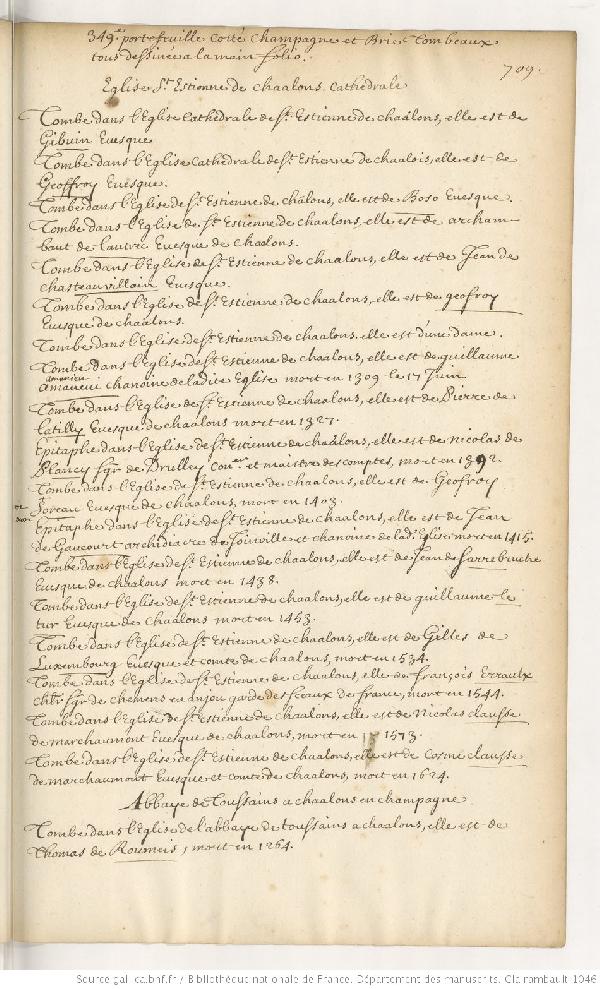 349.e portefeuille Cotté Champagne et Brie. Tombeaux
tous dessinéz a la main folio.
709.
Eglise St. Estienne de Chaalons. Cathedrale
Tombe dans l'Eglise Cathedrale de St. Estienne de chaalons, elle est de
Gibuin Euesque
Tombe dans l'Eglise Cathedrale de St. Estienne de chaalois, elle est de
Geoffroy Euesque.
Tombe dans l'Eglise de St. Estienne de chalons, elle est de Boso Euesque.
Tombe dans l'Eglise de St. Estienne de chaalons, elle est de archam-
baut de lautre Euesque de chaalons.
Tombe dans l'Eglise de St. Estienne de chaalons, elle est de Jean de
chasteauvillain Euesque.
Tombe dans l'Eglise de St. Estienne de chaalons, elle est de geofroy
Euesque de chaalons.
Tombe dans l'Eglise de St. Estienne de chaalons, elle est d'une dame.
Tombe dans l'Eglise de St. Estienne de chaalons, elle est de guillaume
amaneui chanoine de ladite Eglise mort en 1309 le 17 Juin
Tombe dans l'Eglise de St. Estienne de chaalons, elle est de Pierre de
latilly Euesque de chaalons mort en 1327.
Epitaphe dans l'Eglise de St. Estienne de chaalons, elle est de nicolas de
Plancy sgr. de Drulley Coner. et maistre des comptes, mort en 1392.
Tombe dans l'Eglise de St. Estienne de chaalons, elle est de Geofroy
Soreau Euesque de chaalons, mort en 1403.
Epitaphe dans l'Eglise de St. Estienne de chaalons, elle est de Jean
de Gaucourt archidiacre de Joinville et chanoine de lad. Eglise mort en 1415.
Tombe dans l'Eglise de St. Estienne de chaalons, elle est de Jean de Sarrebruche
Euesque de chaalons mort en 1438.
Tombe dans l'Eglise de St. Estienne de chaalons, elle est de guillaume le
tur Euesque de chaalons mort en 1453.
Tombe dans l'Eglise de St. Estienne de chaalons, elle est de Gilles de
Luxembourg Euesque et comte de chaalons, mort en 1534.
Tombe dans l'Eglise de St. Estienne de chaalons, elle de françois Erraulx
chlr. sgr. de chemens en anjou garde des sceaux de france, mort en 1544.
Tombe dans l'Eglise de St. Estienne de chaalons, elle est de Nicolas clausse
de marchaumont Euesque de chaalons, mort en 1573.
Tombe dans l'Eglise de St. Estienne de chaalons, elle est de Cosme clausse
de marchaumont Euesque et comte de chaalons, mort en 1624.
Abbaye de Toussains a chaalons en champagne
Tombe dans l'Eglise de l'abbaye de toussains a chaalons, elle est de
Thomas de Roumeis, mort en 1264.
Source gallica.bnf.fr / Bibliothèque nationale de France. Département des manuscrits. Clairambault 1046